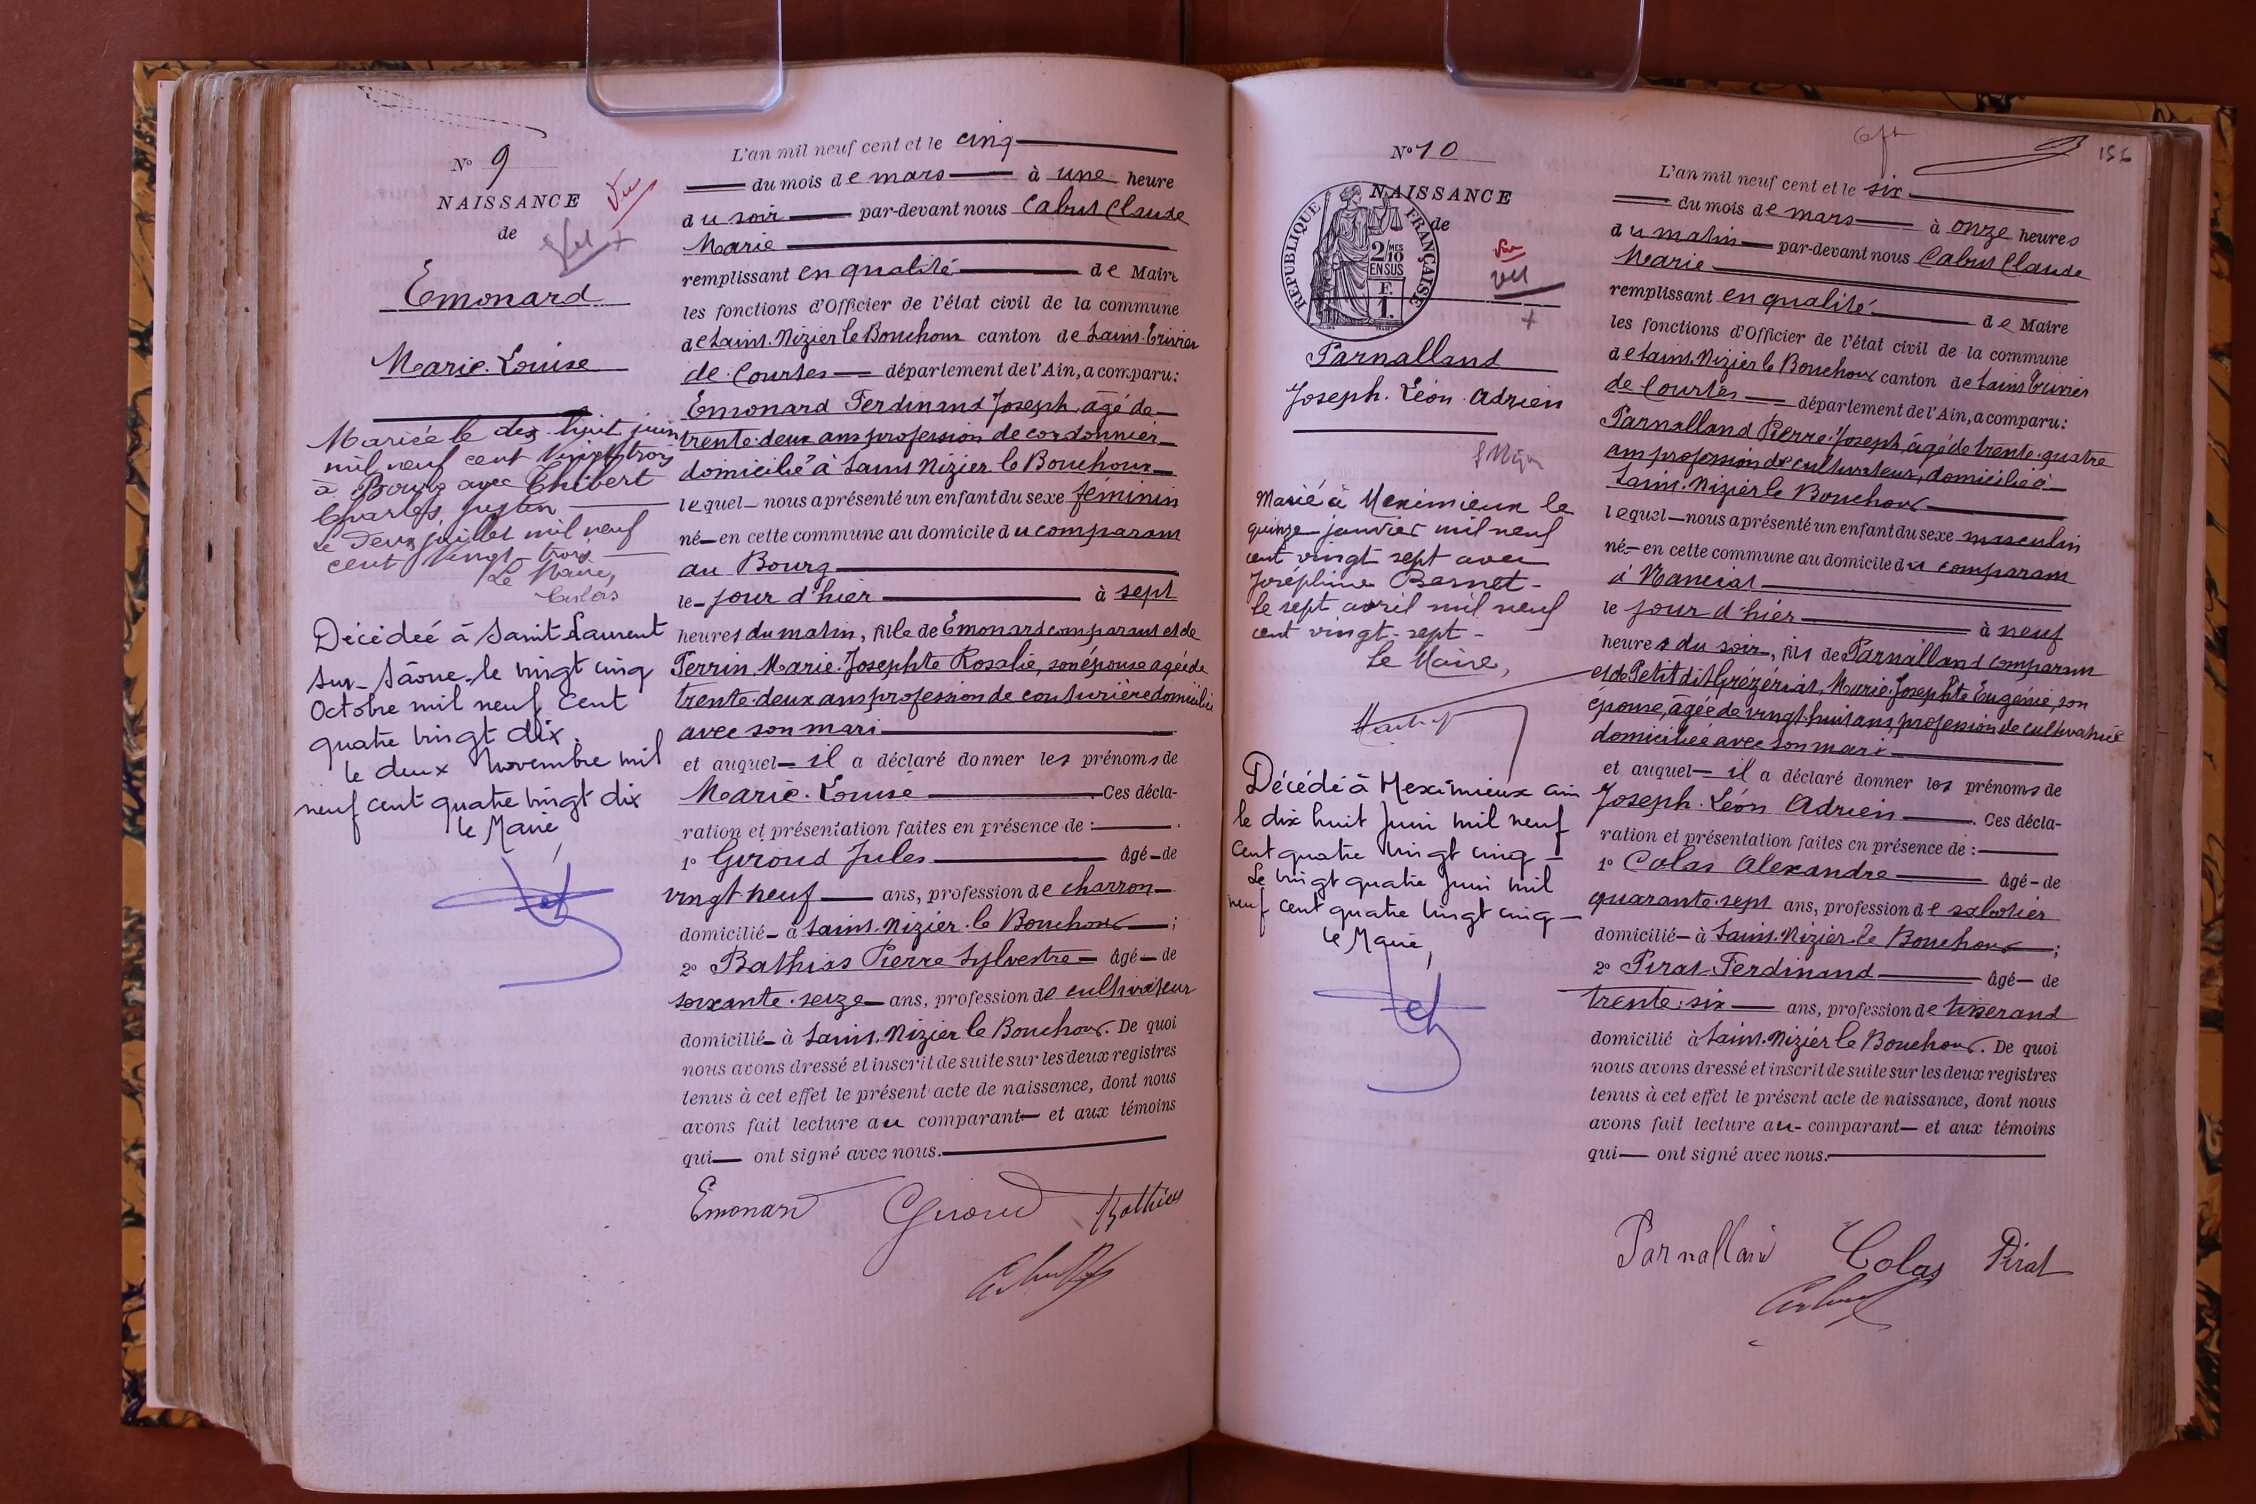 N° 9
NAISSANCE
de
Vu
Émonard
Marie-Louise
Mariée le dix-huit juin
mil neuf cent vingt trois
à Bourg avec Thibert
Charles Justin
Le deux juillet mil neuf
cent vingt-trois
Le Maire,
Décédeé à Saint Laurent
sur-Saône-le vingt cinq
Octobre mil neuf cent
quatre vingt dix.
le deux novembre mil
neuf cent quatre vingt dix
le Maire,
L'an mil neuf cent et le cinq
du mois de mars à une heure
du soir par-devant nous Cabut Claude
Marie
remplissant en qualité de Maire
les fonctions d'Officier de l'état civil de la commune
de Saint-Nizier le Bouchoux canton de Saint-Trivier
de Courtes département de l'Ain, a comparu:
Émonard Ferdinand Joseph, âgé de
trente-deux ans profession de cordonnier
domicilié à Saint Nizier le Bouchoux
lequel nous a présenté un enfant du sexe féminin
né en cette commune au domicile du comparant
au Bourg
le jour d'hier à sept
heures du matin, fille de Émonard comparant et de
Perrin Marie-Josephte Rosalie, son épouse agée de
trente-deux ans profession de couturière domiciliée
avec son mari
et auquel il a déclaré donner les prénoms de
Marie-Louise Ces décla-
ration et présentation faites en présence de :
1° Giroud Jules âgé de
vingt neuf ans, profession de charron
domicilié à Saint-Nizier-le Bouchoux ;
2° Bathias Pierre Sylvestre âgé de
soixante-seize ans, profession de cultivateur
domicilié à Saint-Nizier le Bouchoux. De quoi
nous avons dressé et inscrit de suite sur les deux registres
tenus à cet effet le présent acte de naissance, dont nous
avons fait lecture au comparant et aux témoins
qui ont signé avec nous.
Émonard Giroud Bathias
N° 10
NAISSANCE
de
RÉPUBLIQUE FRANÇAISE
2/MES
10
EN SUS
F.
1.
Vu
vu
Parnalland
Joseph-Léon-Adrien
Marié à Meximieux le
quinze janvier mil neuf
cent vingt sept avec
Joséphine Bernet-
le sept avril mil neuf
cent vingt-sept-
Le Maire,
Décédé à Meximieux ain
le dix huit Juin mil neuf
Cent quatre vingt cinq
Le vingt quatre Juin mil
neuf cent quatre vingt cinq
le Maire,
156
L'an mil neuf cent et le six
du mois de mars à onze heures
du matin par-devant nous Cabut Claude
Marie
remplissant en qualité de Maire
les fonctions d'Officier de l'état civil de la commune
de Saint-Nizier le Bouchoux canton de Saint Trivier
de Courtes département de l'Ain, a comparu:
Parnalland Pierre-Joseph, âgé de trente-quatre
ans profession de cultivateur, domicilié à
Saint-Nizier le Bouchoux
lequel nous a présenté un enfant du sexe masculin
né en cette commune au domicile du comparant
à Manciat
le jour d'hier à neuf
heures du soir, fils de Parnalland comparant
et de Petit dit Grézériat, Marie-Josephte Eugénie, son
épouse, âgée de vingt-huit ans, profession de cultivatrice
domiciliée avec son mari
et auquel il a déclaré donner les prénoms de
Joseph-Léon Adrien Ces décla-
ration et présentation faites en présence de :
1° Colas Alexandre âgé de
quarante-sept ans, profession de sabotier
domicilié à Saint-Nizier-le Bouchoux ;
2° Pirat-Ferdinand âgé de
trente-six ans, profession de tisserand
domicilié à Saint-Nizier le Bouchoux. De quoi
nous avons dressé et inscrit de suite sur les deux registres
tenus à cet effet le présent acte de naissance, dont nous
avons fait lecture au comparant et aux témoins
qui ont signé avec nous.
Parnalland Colas Pirat